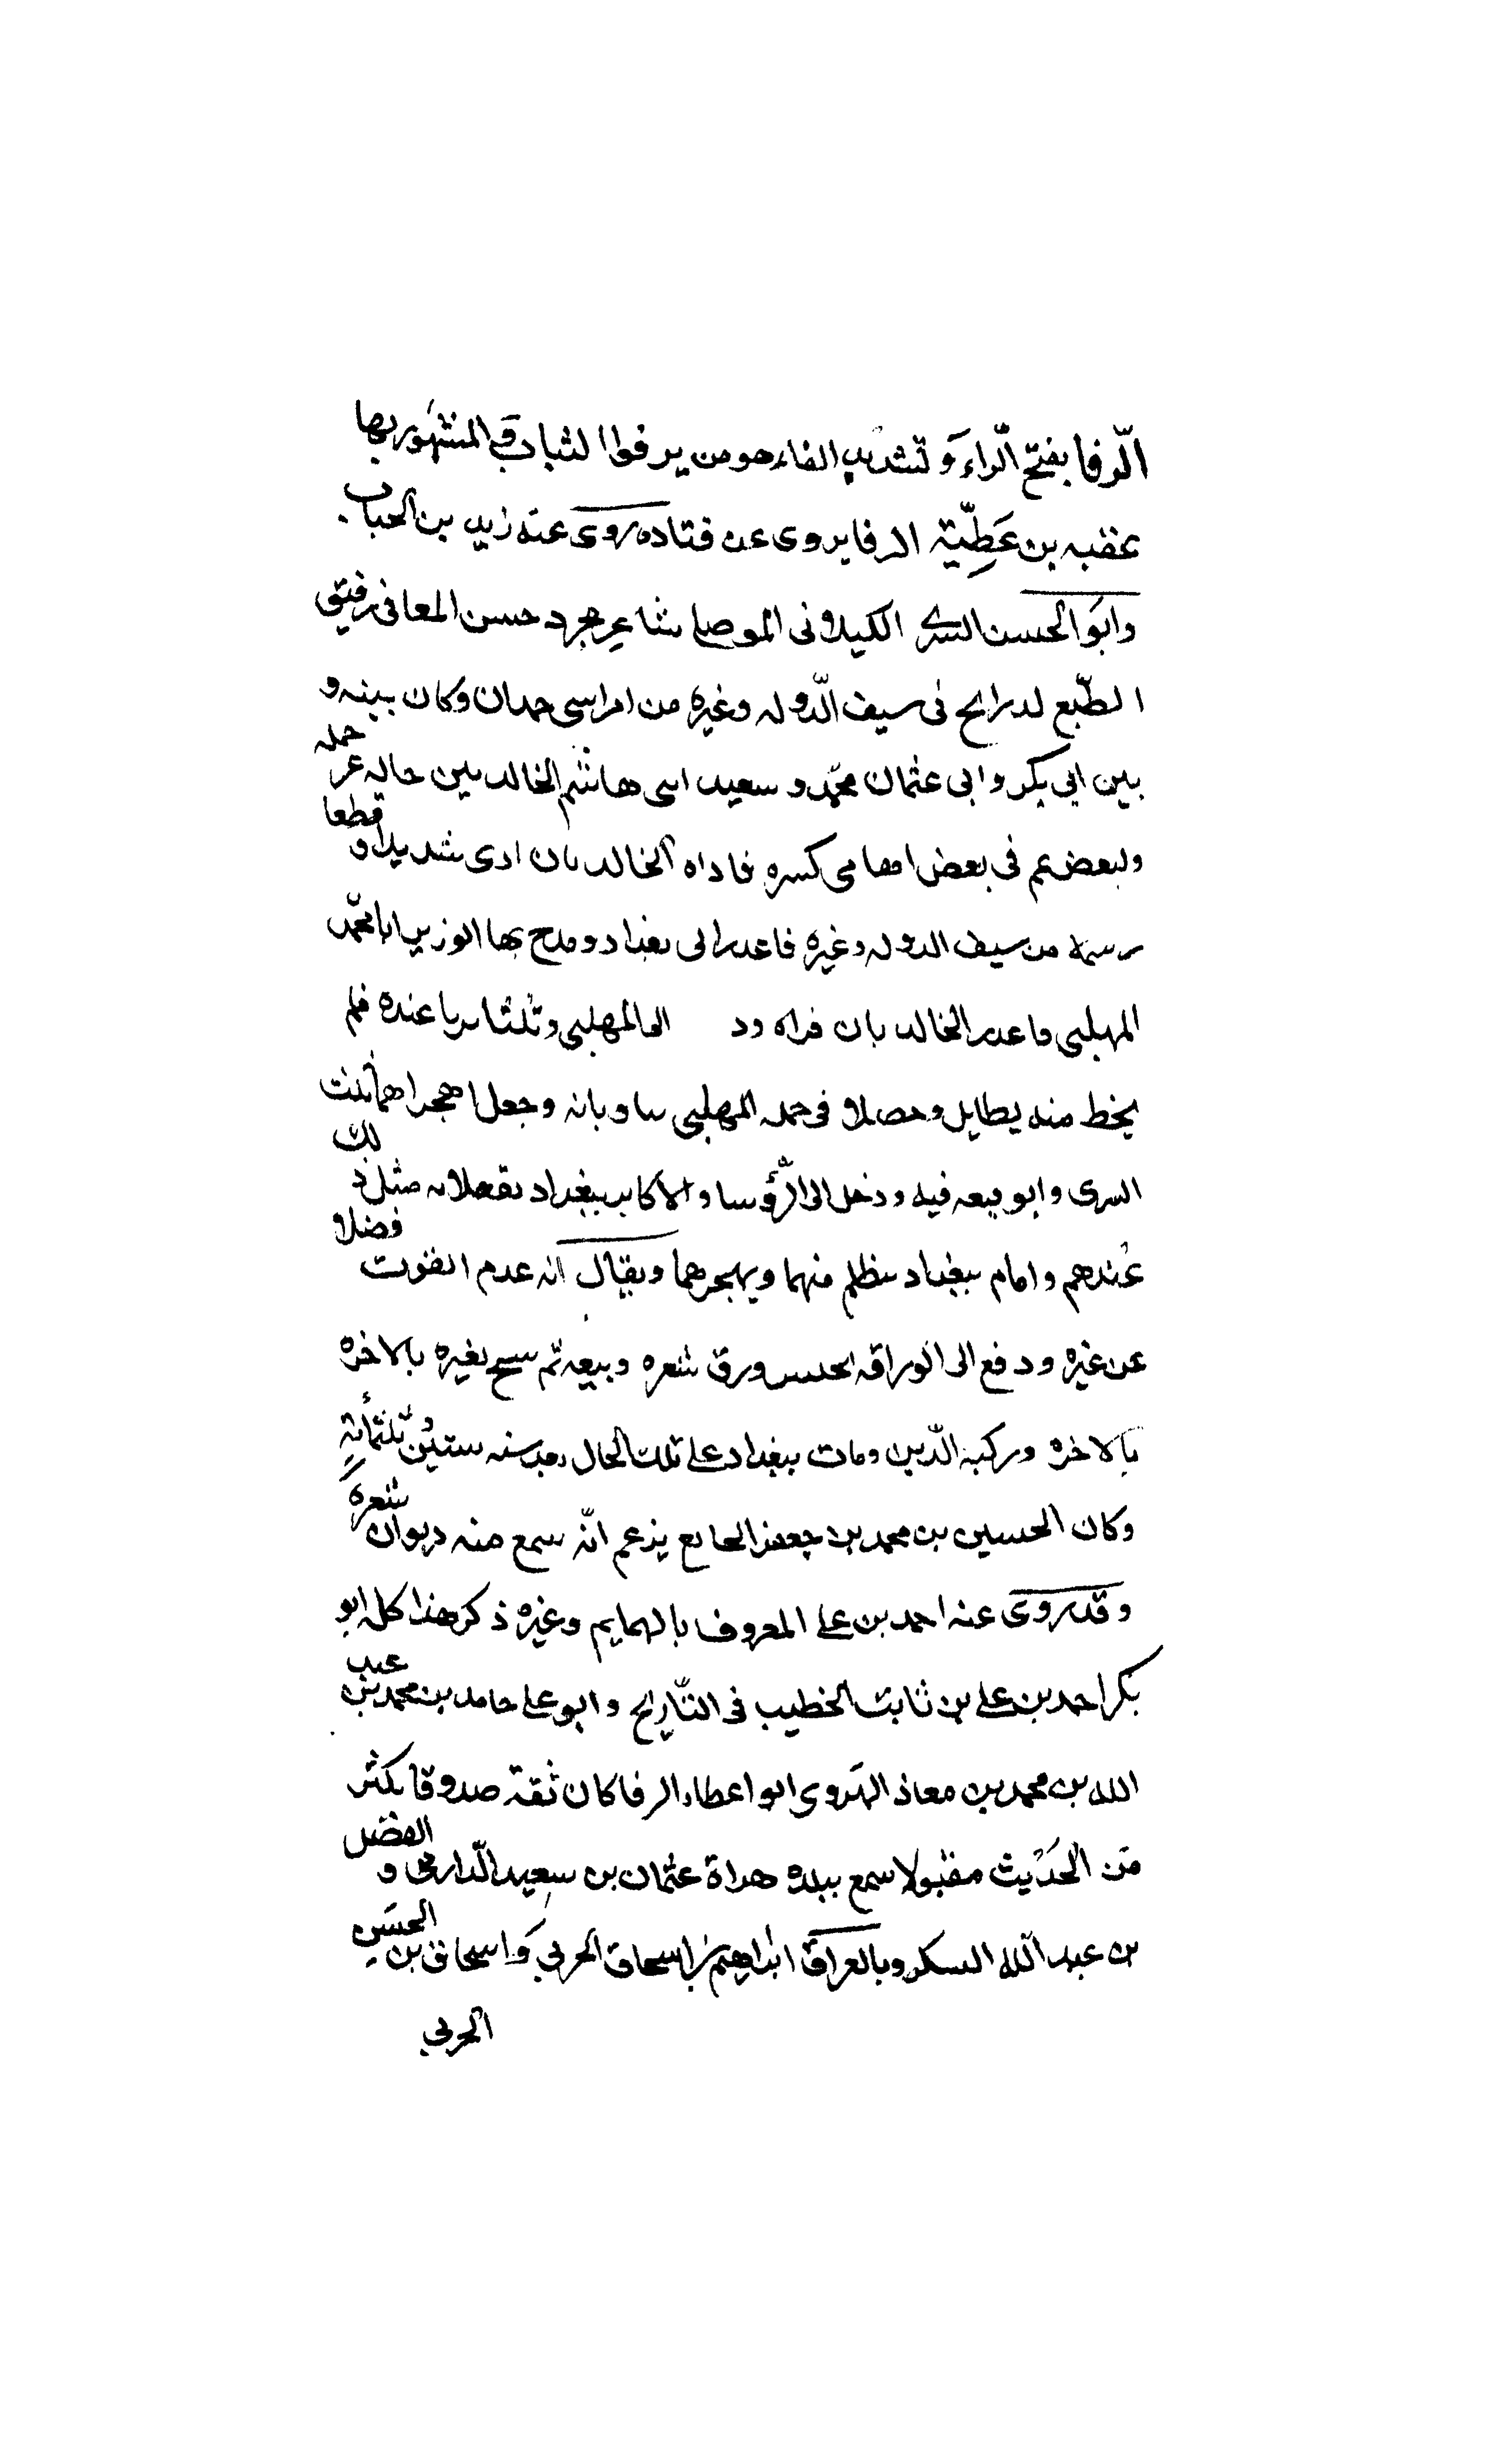 الّرفا بفتح الّراء و تشديد الفاء هو من يرفوا الثياب في المشهور بها
عقبه بن عَطِيّة الرفا يروى عن قتاده روى عنه زيد بن الحباب
وابو الحسن السرى الكيلانى الموصلى شاعر مجرد حسن المعانى رفيق
الطّبع لدرايح فى سيف الّدوله وغيره من امراسى حمدان وكان بينه و
بين ابي بكر و ابى عثمان محمّد و سعيد اسى هاشم الخالديين حاله عر حمله
ولبعض عم فى بعض كسره فاداه الخالديان ادى شديدا و قطعا
رسمه من سيف الدوله وغيره فاعدرا لى بغداد ومدح بها الوزير ابا محمّد
المهلبى فاعدر الخالديان وراه ود الى المهلبى وثلثا عنده فلم
يخط منه بطايل وحصلا فى حمله المهلبى وجعل اهجرا هما ثلث
السرى و ابو فيه ودخل الى الّرؤسا و الاكابر ببغداد مثل ذلك
عندهم و امام ببغداد ينظلم منهما ويهجرهما ويقال انه عدم القوت فضلا
عن غيره ودفع الى الوراقه ورق شعره وبيعه ثم نسخ لغيره بالاخره
بالاخره وركبه الّدين ومات ببغداد على تلك الحال بعد سنه ستين ثلثمائة
وكان الحسين بن محمد بن جعفر الحايع يزعم انّه سمع منه ديوان شعره
وقد روى عنه احمد بن على المعروف بالهمايم وغيره ذكر هذا كله ابو
بكر احمد بن على بن ثابت الخطيب فى التّاريح و ابو على حامد بن محمد بن عبد
الله بن محمد بن معاذ الهَروى ابو اعطاء الرفا كان ثقة صدوقا مكثر
مَن الحَدْيث مقبولا سمع ببلده هراة عثمان بن سعيد الّدارمى و الفضل
بن عبد الله اليسكرو بالعراق ابراهيم بن اسحاق الحربي وَاسحاق بن الحسَن
الحربي